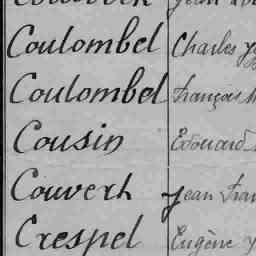 Coulombel Charles
Coulombel François
Cousin Edouard
Couvert Jean
Crespel Eugène